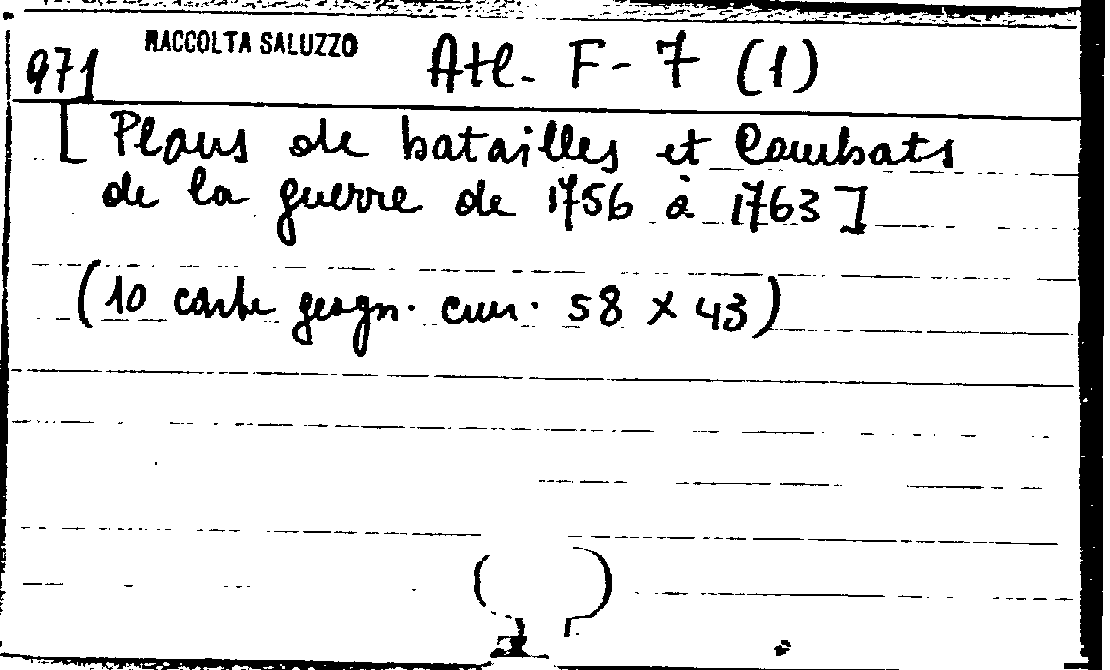 971 RACCOLTA SALUZZO Atl. F-7 (1)
[Plans de batailles et Combats
de la guerre de 1756 à 1763]
(10 carte geogr. cm. 58 x 43)